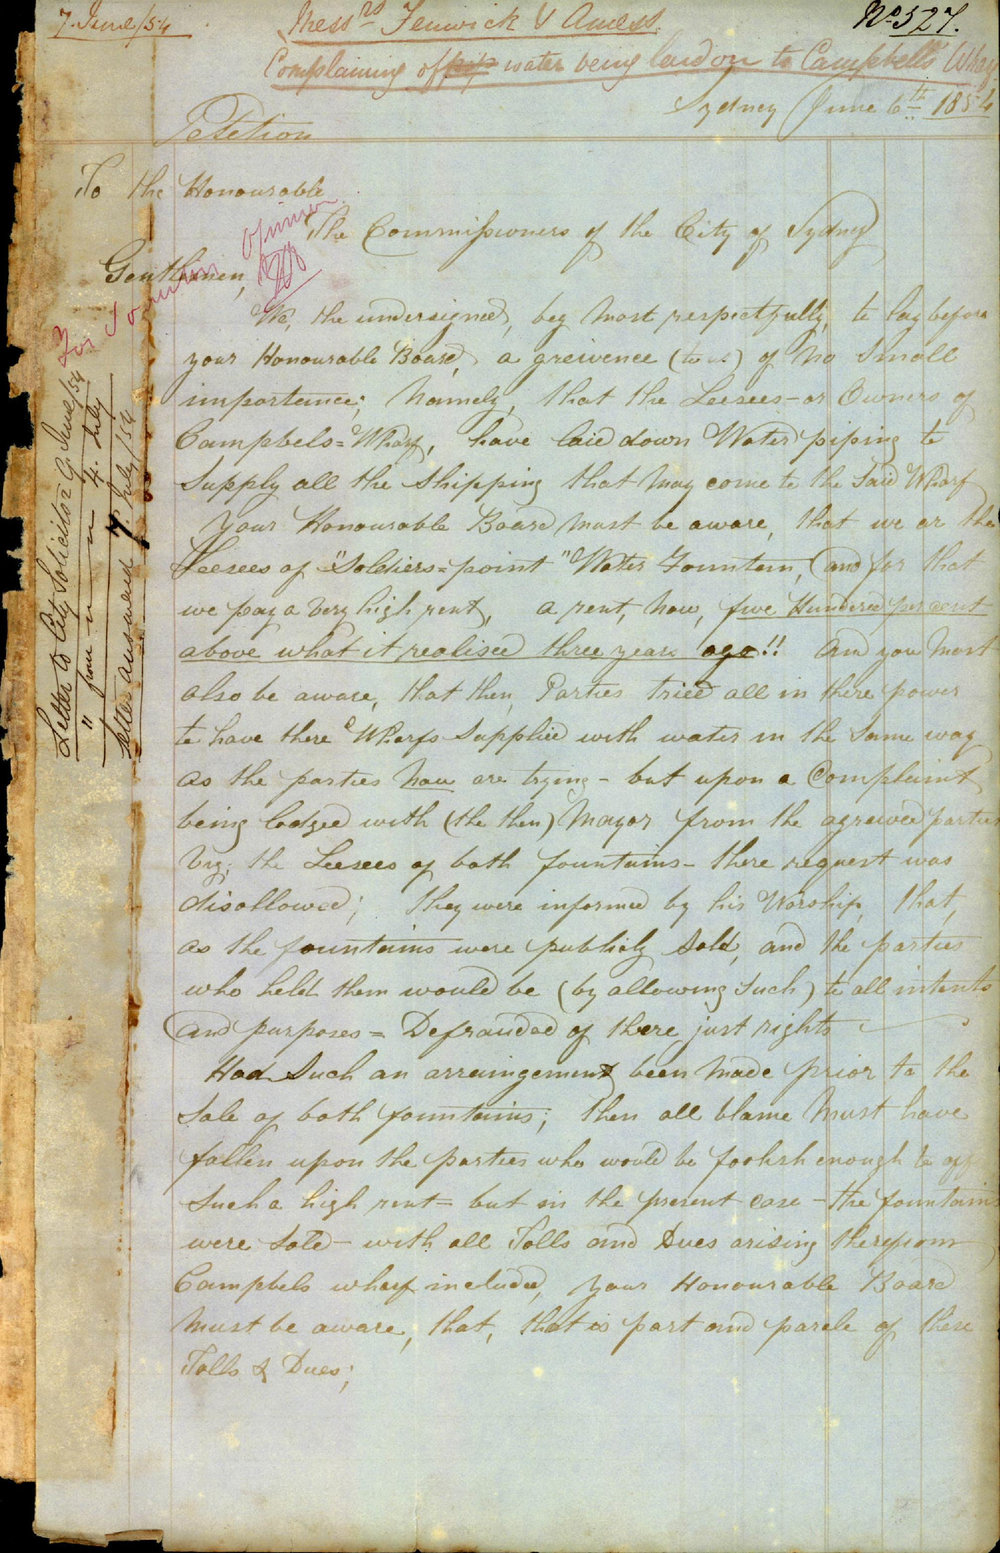 7. June/54
Messrs Fenwick & Amess.
No 527.
Complaining of pip water being laid on to Campbells Wharf
Sydney June 6th 1854
Petition
To the Honourable
The Commissioners of the City of Sydney
Gentlemen,
For Town Solicitors opinion
We, the undersigned, beg most respectfully, to lay before
your Honourable Board, a greivence (to us) of No Small
importance; Namely, that the Leesees - or Owners of
Campbels = Wharf, have laid down Water piping to
Supply all the Shipping that May come to the Said Wharf
Your Honourable Board Must be aware, that we ar the
Leesees of "Soldiers = point" Water Fountain, (and for that
we pay a Very high rent, a rent, Now, five Hundred per cent
above what it realised three years ago!! and you Must
also be aware, that then, Parties tried all in there power
to have there Wharfs Supplied with water in the Same way
as the parties Now are trying - but upon a Complaint
being lodged with (the then) Mayor from the agreived parties
Viz; the Leesees of both fountains - there request was
disallowed; they were informed by his Worship, that,
as the fountains were publicly Sold, and the parties
who held them would be (by allowing Such) to all intents
and purposes = Defrauded of there just rights
Had Such an arraingement been Made prior to the
Sale of both fountains; then all blame Must have
fallen upon the parties who would be foolish enough to
Such a high rent = but in the present case - the fountains
were Sold - with all Tolls and Dues arising therefrom
Campbels wharf included, your Honourable Board
Must be aware, that, that is part and parcle of these
Tolls & Dues;
Letter to City Solicitor 9 June/54
" from " " " 4. July
Letter answered 7. July/54